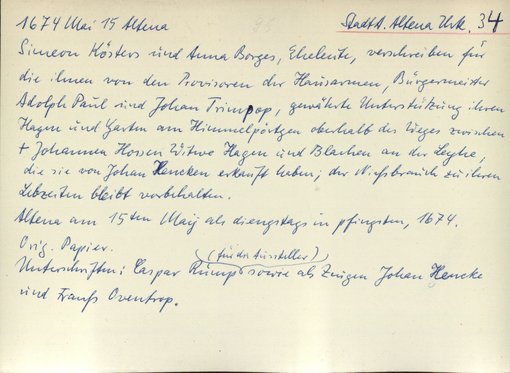 1674 Mai 15 Altena
StadtA. Altena Urk. 34
Simeon Kösters und Anna Borges, Eheleute, verschreiben für
die ihnen von den Provisoren der Hausarmen, Bürgermeister
Adolph Paul und Johan Trimpop, gewährte Unterstützung ihren
Hagen und Garten am Himmelpörtgen oberhalb des Weges zwischen
+ Johannen Hossen Witwe Hagen und Blachen an der Leyhe,
die sie von Johan Hencken erkauft haben; der Nießbrauch zu ihren
Lebzeiten bleibt vorbehalten.
Altena am 15ten Maij als diengstags in pfingsten, 1674.
Orig. Papier.
(für die Aussteller)
Unterschriften: Caspar Rump sowie als Zeugen Johan Hencke
und Franß Oventrop.